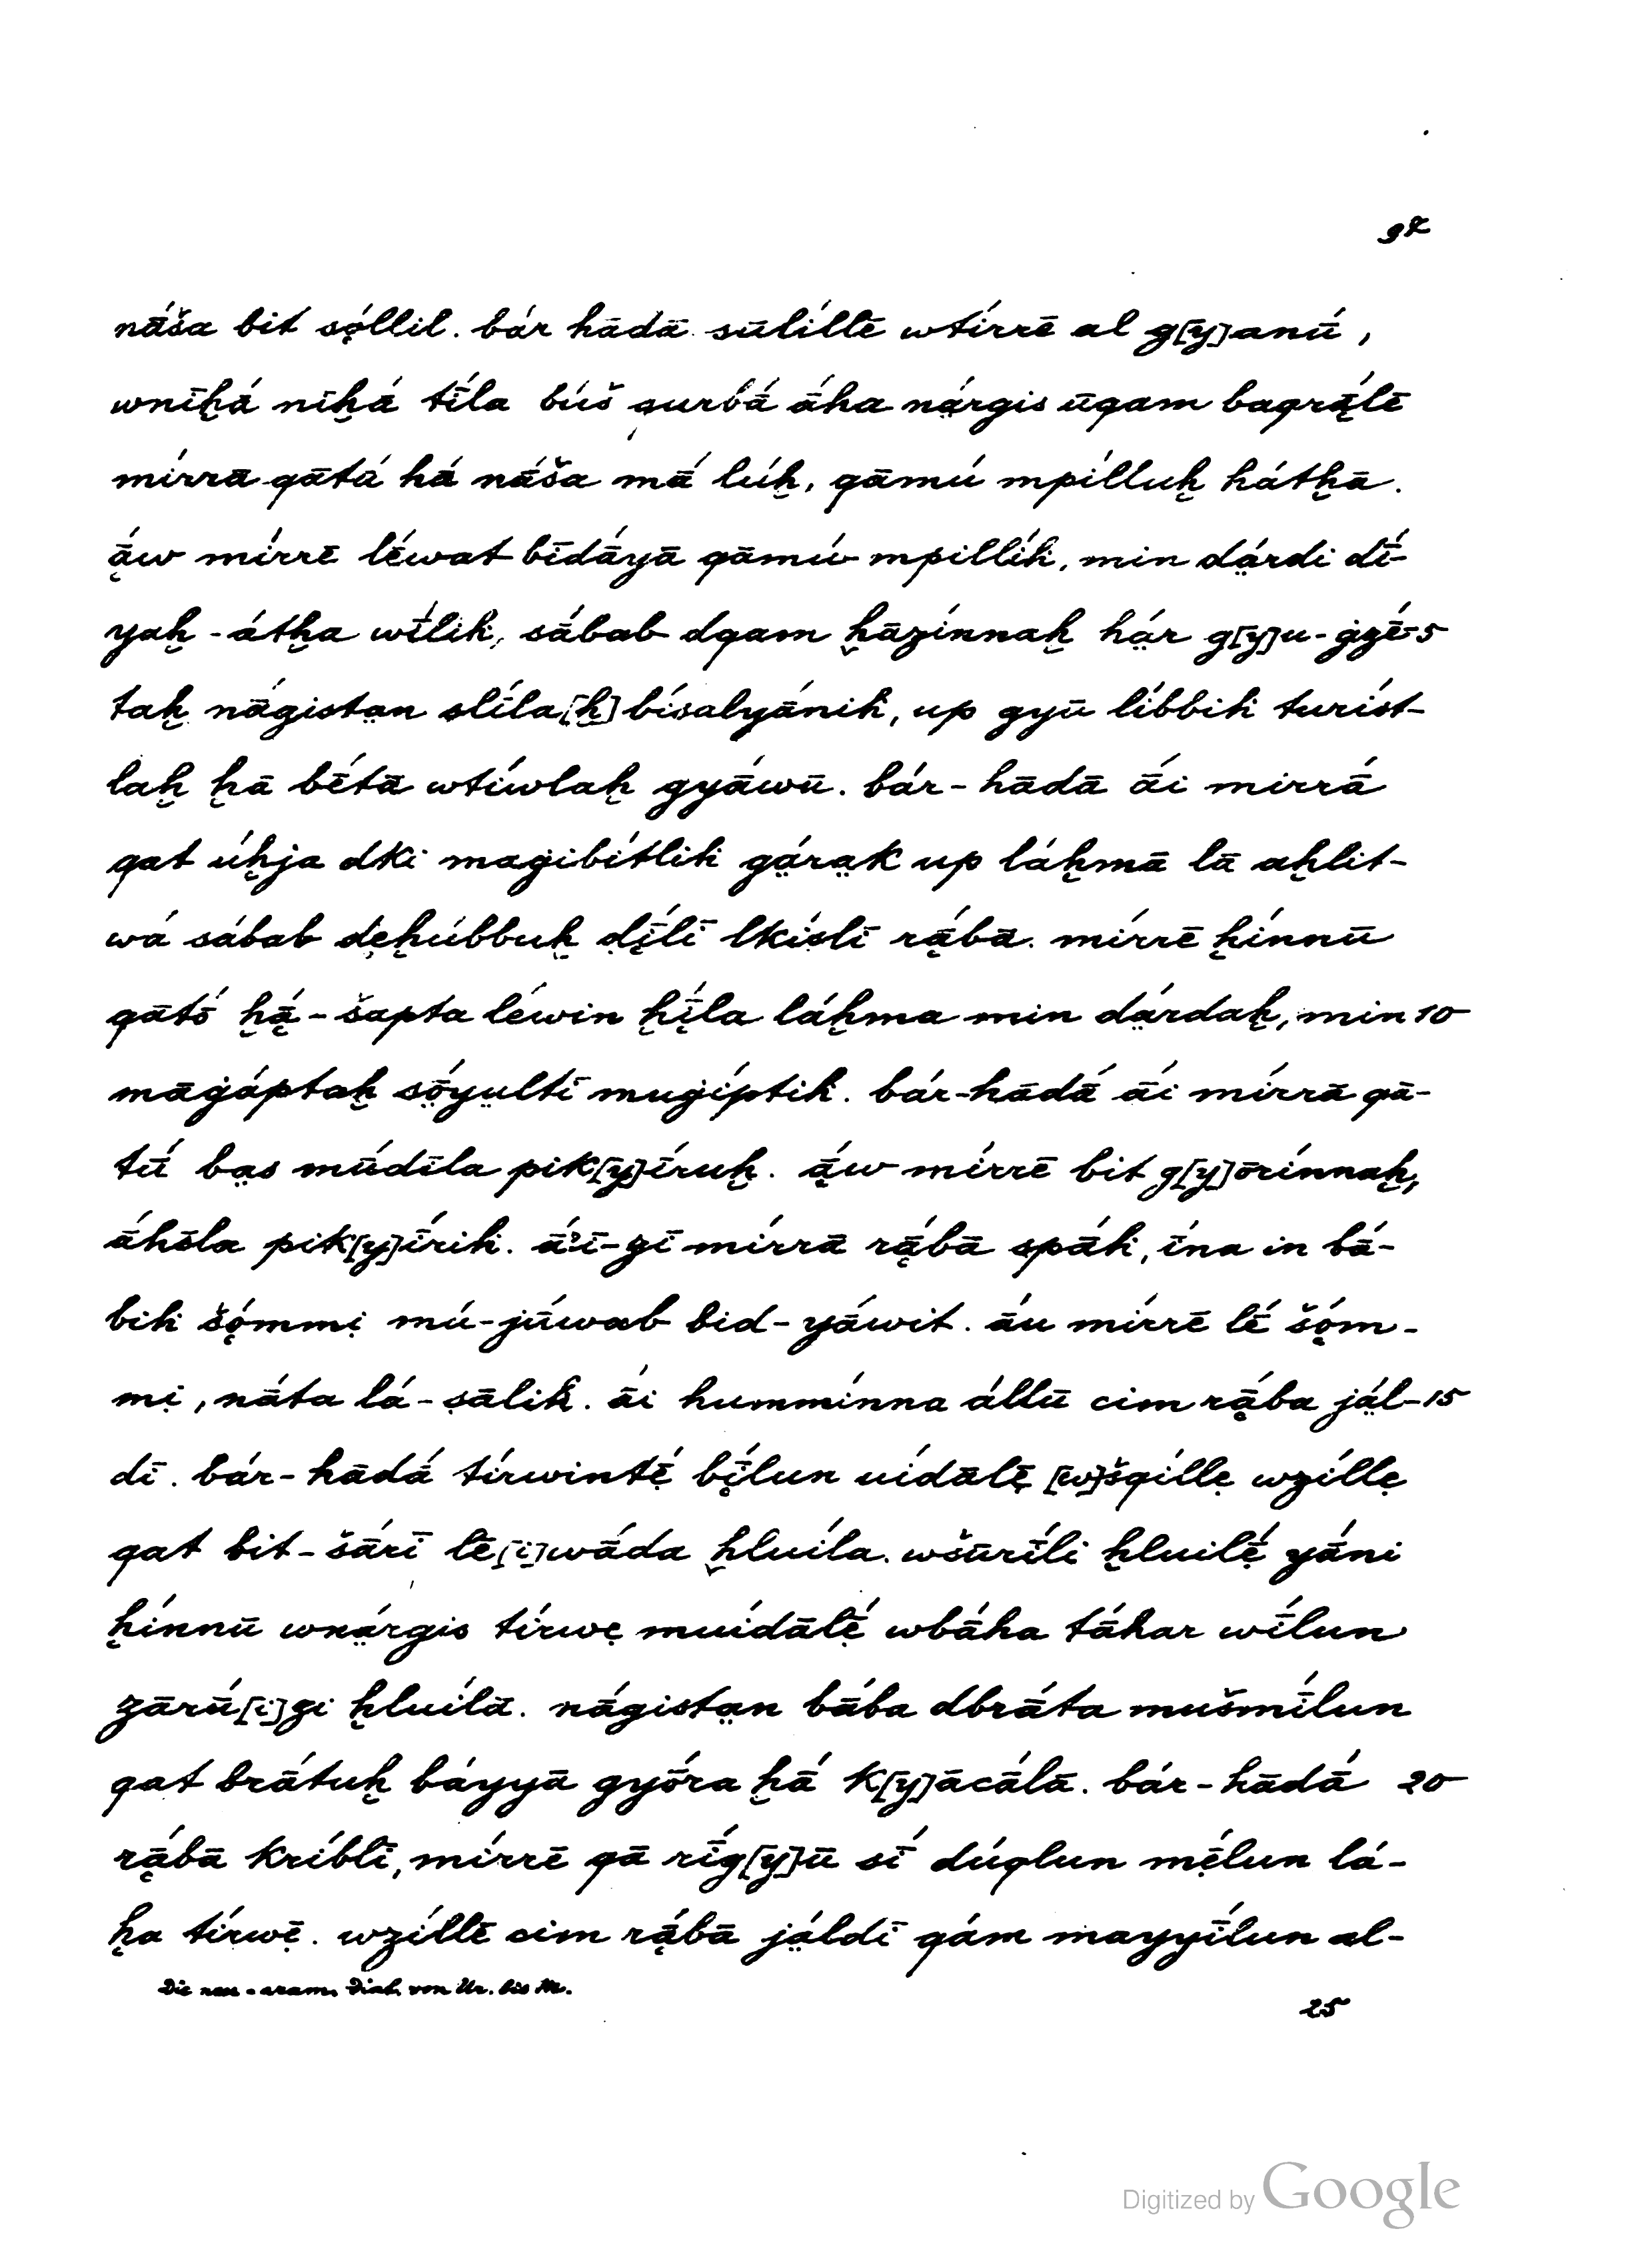 97
nā́ša bit sọ́llil. bár hādā sūlíllē wtírrē al g[y]anū́,
wnīḫā́ nīḫá tī́la búš qurbā́ ā́ha nä́rgis ūqam baqrā̭́lē
mírrā qātá há nā́ša mā́ lúḫ, qāmú mpílluḫ hátḫā.
ā̭́w mírrē léwat bīdā́yā qāmú mpillíḣ, min dä́rdi dī́-
yaḫ-átḫa wī́liḣ, sábab dqam ḫāzínnaḫ hä́r g[y]u-ġzḗ- 5
taḫ nā́gistan̤ slíla[ḫ] bísalyā́niḣ, up gyū líbbiḣ turíst-
laḫ ḫā bḗtā wtíwlaḫ gyā́wū. bár-hādā ā́i mirrā́
qat úḫja dki maġibítliḣ gä́räk up láḫmā lā aḫlit-
wá sábab dẹḫúbbuḫ dị̄́lī lkíslī rā̭́bā. mírrē ḫínnū
qātṓ ḫā̭́-šapta léwin ḫī̭́la láḫma min dä́rdaḫ, min 10
māġáptaḫ sȫ́yṳltī muġíptiḣ. bár-hādā́ ā́i mírrā qā-
tū́ bäs mū́dīla pik[y]íruḫ. ā̭́w mírrē bit g[y]ōrínnaḫ,
ā́hōla pik[y]ī́riḣ. ā́'ī-zī mírrā rā̭́bā spā́ḣ, ī́na in bā́-
biḣ šọ́mmị mú-jū́wab bid-yā́wit. ā́u mírrē lḗ šọ́m-
mị, nā́ta lá-sāliḣ. ā́i hummínna állū cim rā̭́ba jä́l- 15
dī. bár-hādā́ tírwintẹ̄́ bī̭́lun uídālẹ̄ [w]šqíllẹ wzíllẹ
qat bit-šā́rī lē[i]wā́da ḫluíla. wšūrī́li ḫluilẹ̄́ yā́ni
ḫínnū wnä́rgis tírwẹ muidālẹ̄́ wbā́ha tā́har wī́lun
zārū́[i]zi ḫluílā. nā́gistan̤ bā́ba dbrā́ta mušmī́lun
qat brā́tuḫ báyyā gyṓra ḫā́ k[y]ācā́lā. bár-hādā́ 20
rā̭́bā kríblī, mírrē qā rī́g[y]ū sī́ dúqlun mẹ̄́lun lá-
ḫa tírwẹ̄. wzíllē cim rā̭́bā jä́ldī qám mayyī́lun al-
Die neu-aram. Dial. von Ur. bis M.
25
Digitized by Google